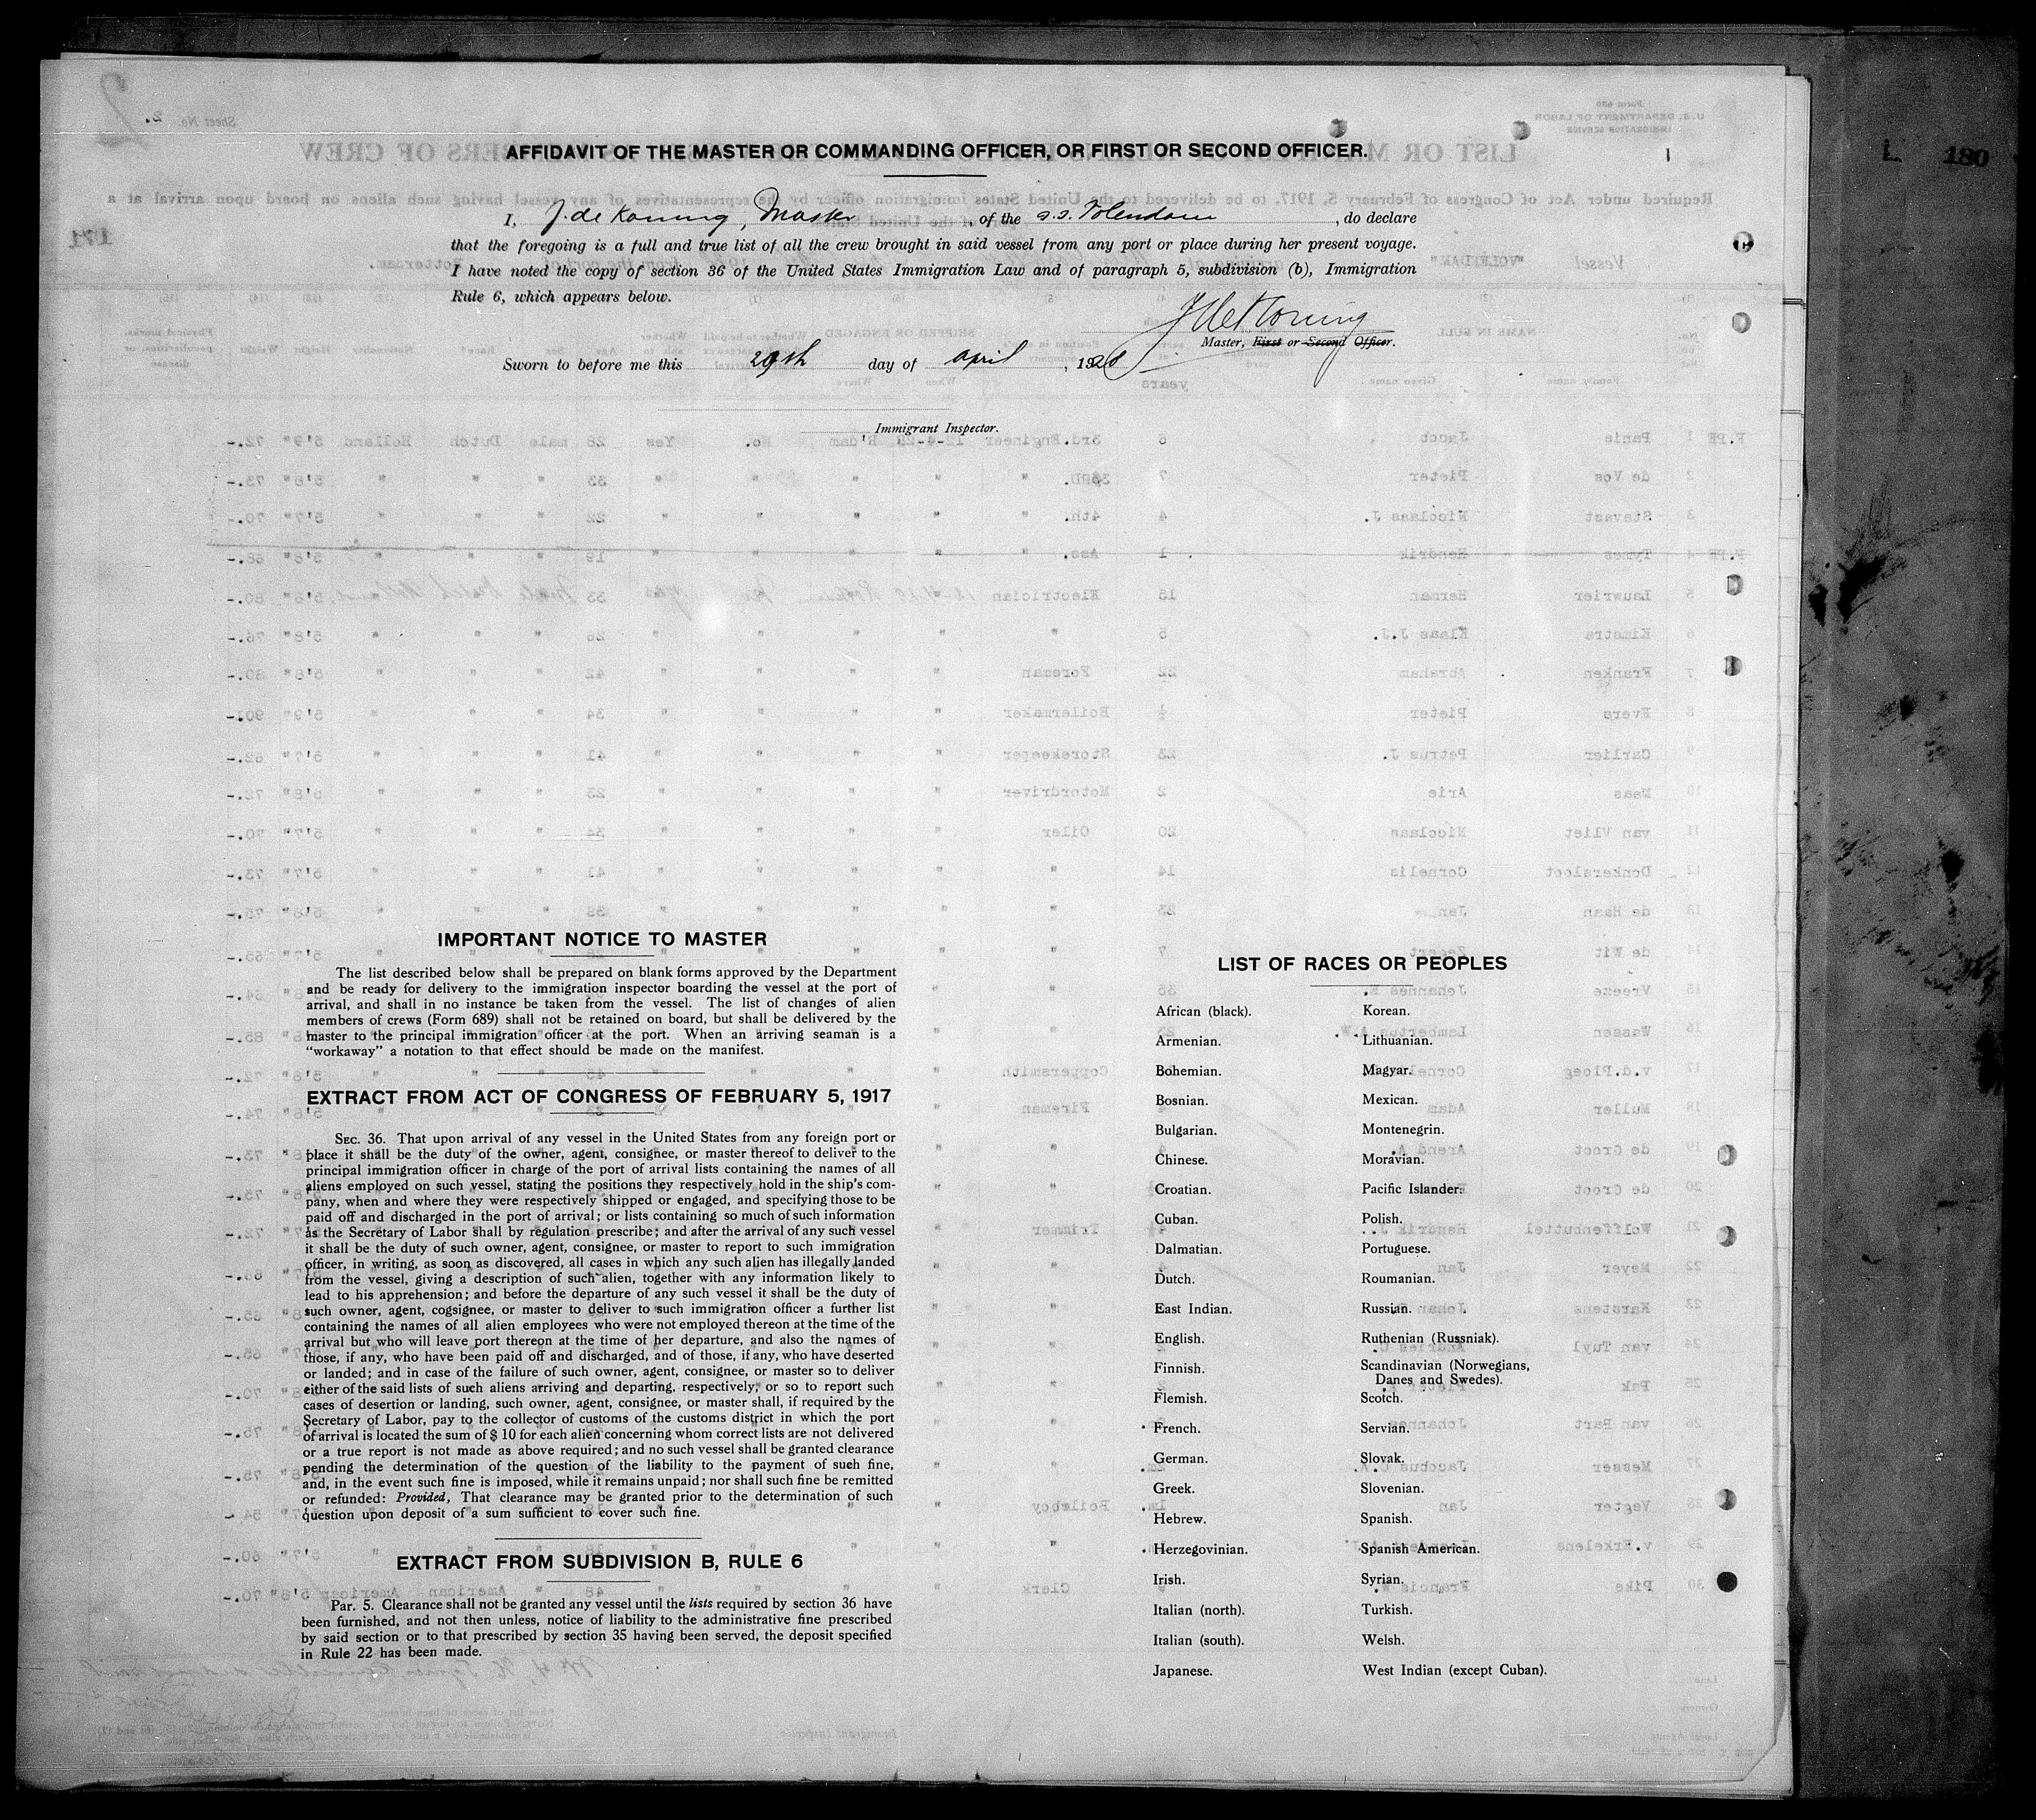 L 180
AFFIDAVIT OF THE MASTER OR COMMANDING OFFICER, OR FIRST OR SECOND OFFICER.
I, J. de Koning, Master, of the s.s. Volendam, do declare
that the foregoing is a full and true list of all the crew brought in said vessel from any port or place during her present voyage.
I have noted the copy of section 36 of the United States Immigration Law and of paragraph 5, subdivision (b), Immigration
Rule 6, which appears below.
J de Koning
Master, First or Second Officer.
Sworn to before me this 29th day of april, 192
Immigrant Inspector.
IMPORTANT NOTICE TO MASTER
The list described below shall be prepared on blank forms approved by the Department
and be ready for delivery to the immigration inspector boarding the vessel at the port of
arrival, and shall in no instance be taken from the vessel. The list of changes of alien
members of crews (Form 689) shall not be retained on board, but shall be delivered by the
master to the principal immigration officer at the port. When an arriving seaman is a
“workaway” a notation to that effect should be made on the manifest.
EXTRACT FROM ACT OF CONGRESS OF FEBRUARY 5, 1917
SEC. 36. That upon arrival of any vessel in the United States from any foreign port or
place it shall be the duty of the owner, agent, consignee, or master thereof to deliver to the
principal immigration officer in charge of the port of arrival lists containing the names of all
aliens employed on such vessel, stating the positions they respectively hold in the ship's com-
pany, when and where they were respectively shipped or engaged, and specifying those to be
paid off and discharged in the port of arrival; or lists containing so much of such information
as the Secretary of Labor shall by regulation prescribe; and after the arrival of any such vessel
it shall be the duty of such owner, agent, consignee, or master to report to such immigration
officer, in writing, as soon as discovered, all cases in which any such alien has illegally landed
from the vessel, giving a description of such alien, together with any information likely to
lead to his apprehension; and before the departure of any such vessel it shall be the duty of
such owner, agent, cogsignee, or master to deliver to such immigration officer a further list
containing the names of all alien employees who were not employed thereon at the time of the
arrival but who will leave port thereon at the time of her departure, and also the names of
those, if any, who have been paid off and discharged, and of those, if any, who have deserted
or landed; and in case of the failure of such owner, agent, consignee, or master so to deliver
either of the said lists of such aliens arriving and departing, respectively, or so to report such
cases of desertion or landing, such owner, agent, consignee, or master shall, if required by the
Secretary of Labor, pay to the collector of customs of the customs district in which the port
of arrival is located the sum of $ 10 for each alien concerning whom correct lists are not delivered
or a true report is not made as above required; and no such vessel shall be granted clearance
pending the determination of the question of the liability to the payment of such fine,
and, in the event such fine is imposed, while it remains unpaid; nor shall such fine be remitted
or refunded: Provided, That clearance may be granted prior to the determination of such
question upon deposit of a sum sufficient to cover such fine.
EXTRACT FROM SUBDIVISION B, RULE 6
Par. 5. Clearance shall not be granted any vessel until the lists required by section 36 have
been furnished, and not then unless, notice of liability to the administrative fine prescribed
by said section or to that prescribed by section 35 having been served, the deposit specified
in Rule 22 has been made.
LIST OF RACES OR PEOPLES
African (black).
Armenian.
Bohemian.
Bosnian.
Bulgarian.
Chinese.
Croatian.
Cuban.
Dalmatian.
Dutch.
East Indian.
English.
Finnish.
Flemish.
French.
German.
Greek.
Hebrew.
Herzegovinian.
Irish.
Italian (north).
Italian (south).
Japanese.
Korean.
Lithuanian.
Magyar.
Mexican.
Montenegrin.
Moravian.
Pacific Islander.
Polish.
Portuguese.
Roumanian.
Russian.
Ruthenian (Russniak).
Scandinavian (Norwegians,
Danes and Swedes).
Scotch.
Servian.
Slovak.
Slovenian.
Spanish.
Spanish American.
Syrian.
Turkish.
Welsh.
West Indian (except Cuban).